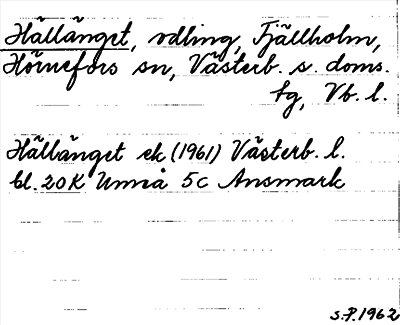 Hällänget, odling, Fjällholm,
Hörnefors sn, Västerb. s. doms.
tg, Vb. l.
Hällänget ek (1961) Västerb. l.
bl. 20K Umeå 5c Ansmark
S.P. 1962